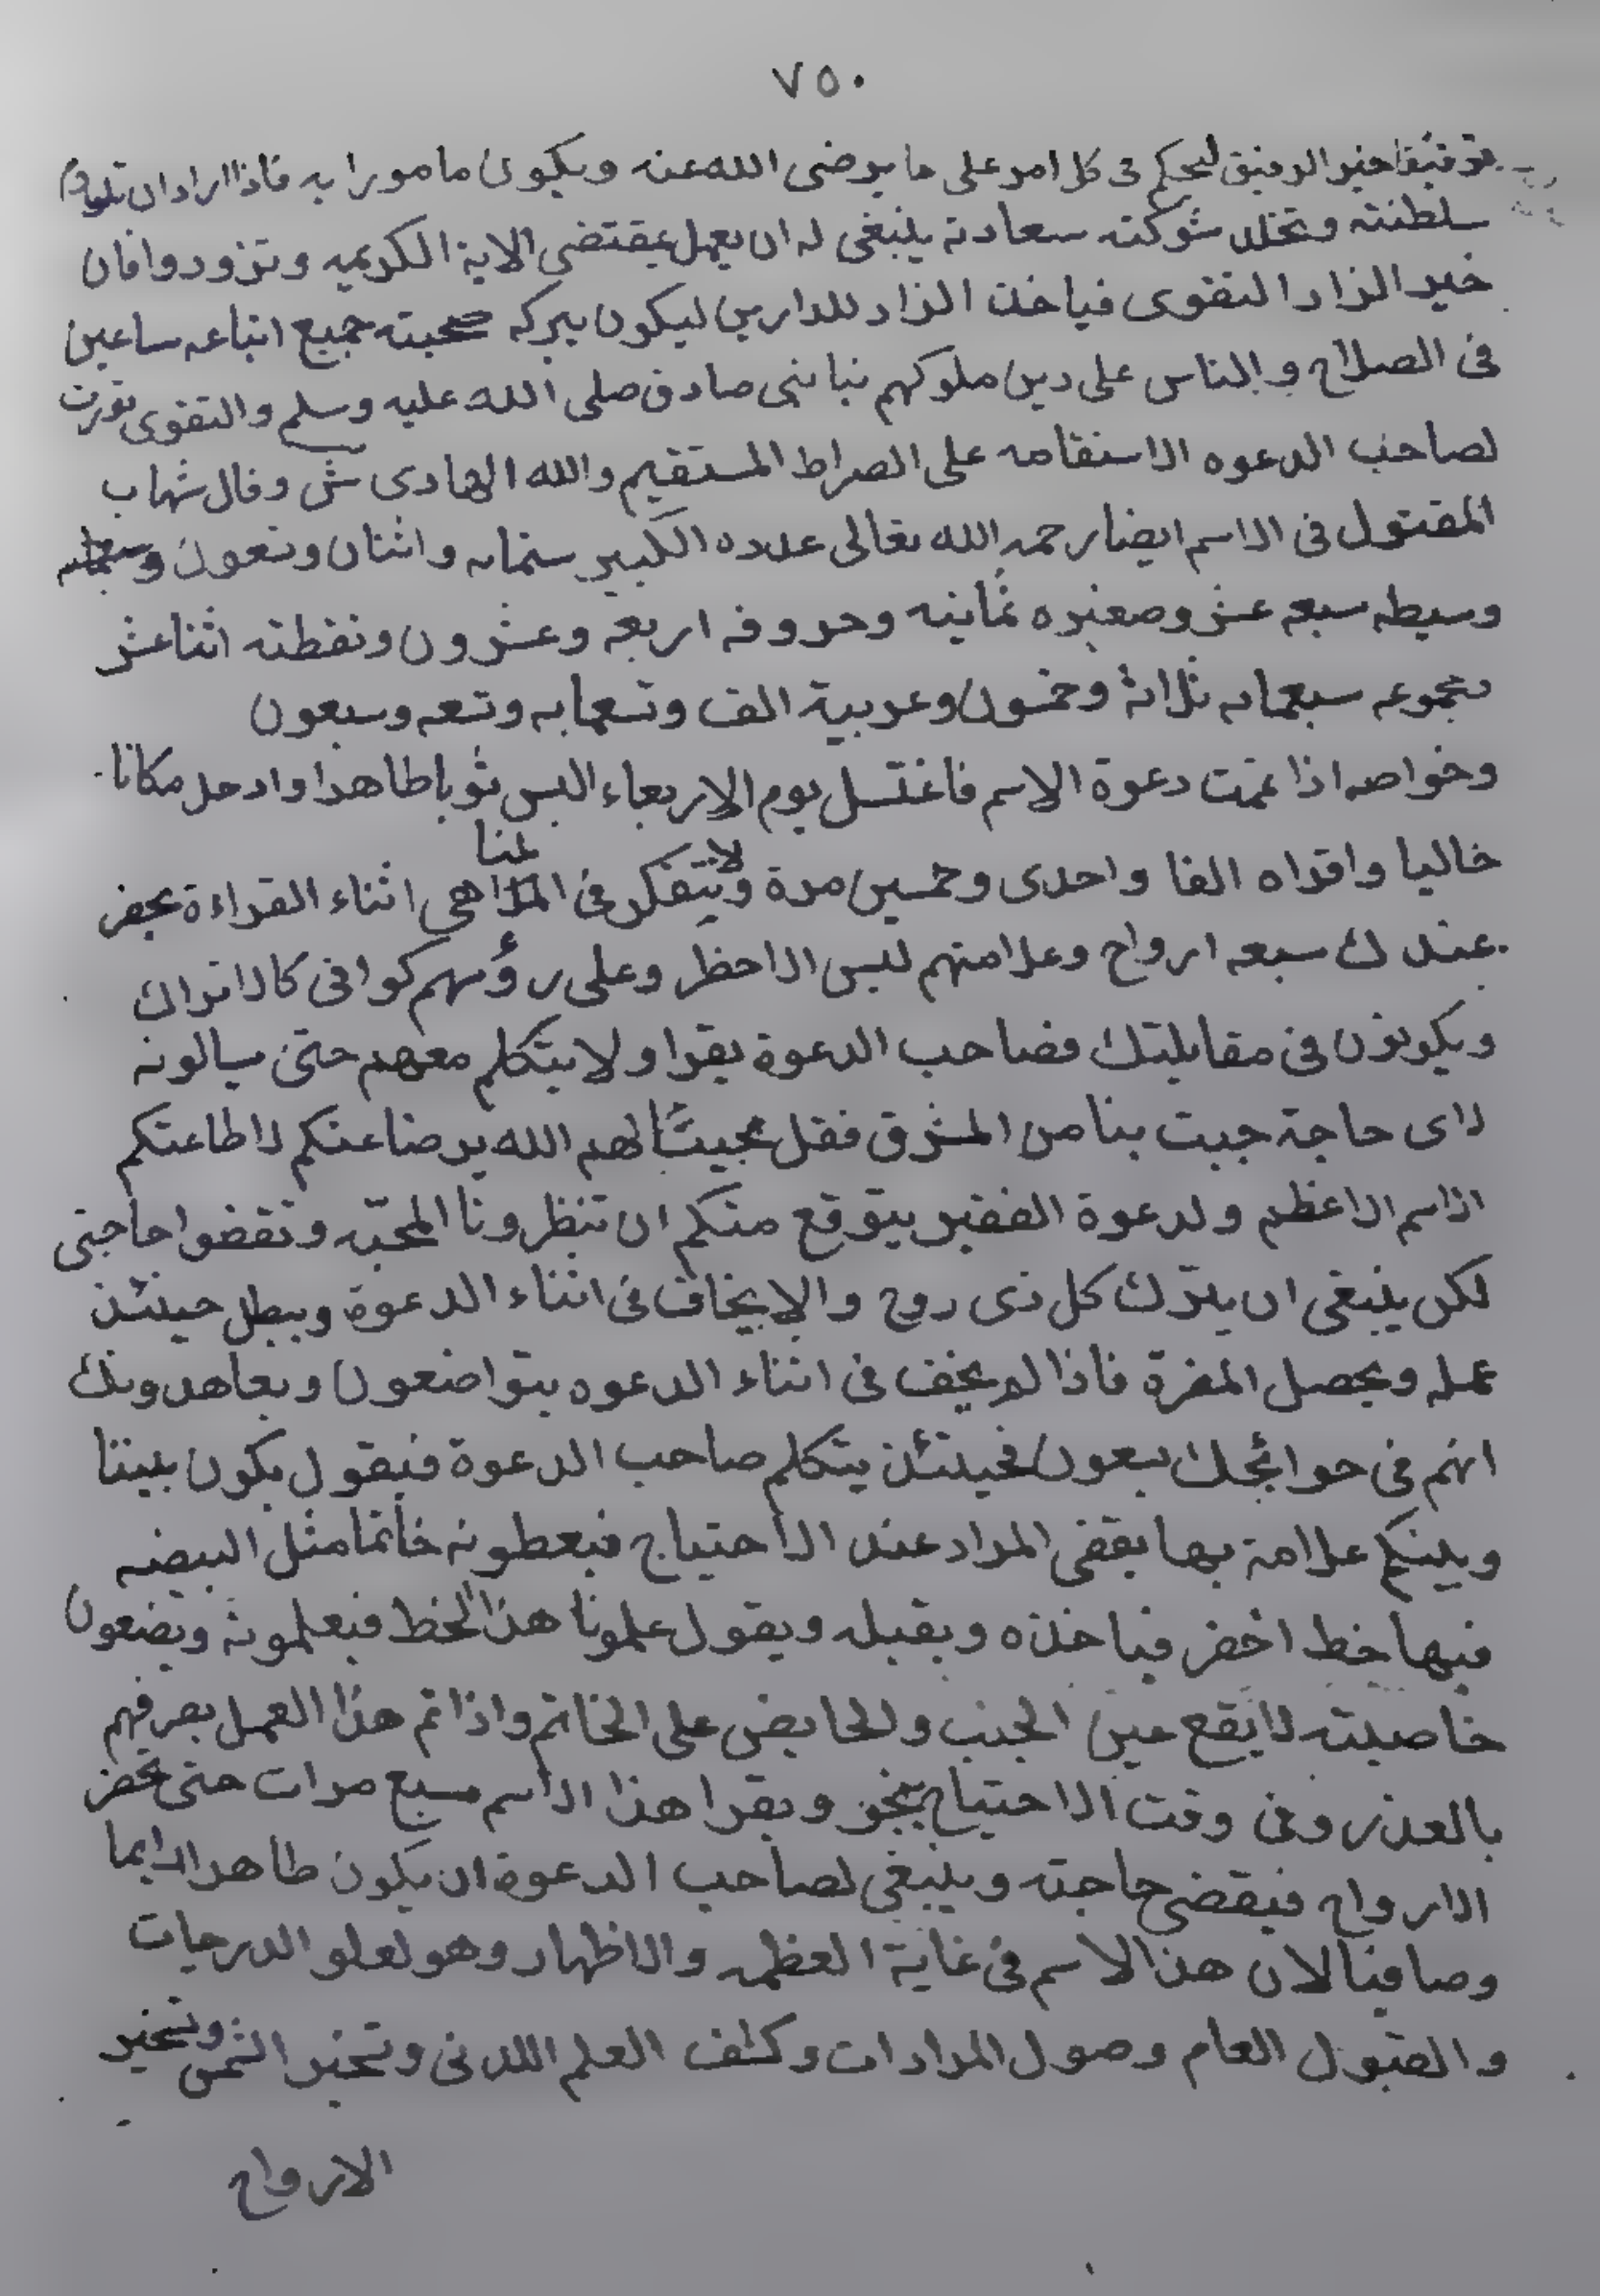 ٧٥٠
توفيقا خير الرفيق ليحكم فى كل امر على ما يرضى الله عنه ويكون مامورا به فاذا اراد ان
سلطنته وتخلد شوكته سعادته ينبغى له ان يعمل بمقتضى الاية الكريمه وتزودوا فان
خير الزاد التقوى فياخذ الزاد للدارين ليكون ببركه صحبته جميع اتباعه ساعين
فى الصلاح والناس على دين ملوكهم نبا نبى صادق صلى الله عليه وسلم والتقوى تورث
لصاحب الدعوه الاستقامه على الصراط المستقيم والله الهادى ش وقال شهاب
المقتول فى الاسم ايضا رحمه الله تعالى عدده الكبير ستمايه واثنان وتسعون
وسيطه سبعه عشر وصغيره ثمانيه وحروفه اربعه وعشرون ونقطته اثنا عشر
مجموعه سبعمايه ثلاثة وخمسون وعربية الف وتسعمايه وتسعه وسبعون
وخواصه اذا تمت دعوة الاسم فاغتسل يوم الاربعاء البس ثوبا طاهرا وادخل مكانا
خاليا واقراه الفا واحدى وخمسين مرة ولا يتفكر فى المناهى اثناء القراءة يحضر
عندك سبعه ارواح وعلامتهم لبس الاخظر وعلى رؤسهم كوافى كالاتراك
ويكونون فى مقابلتك فصاحب الدعوة يقرا ولا يتكلم معهم حتى يسالونه
لاى حاجة جبت بنا من المشرق فقل مجيبا لهم الله يرضا عنكم لاطاعتكم
الاسم الاعظم ولدعوة الفقير يتوقع منكم ان تنظرونا المحبه وتقضوا حاجتى
لكن ينبغى ان يترك كل ذى روح والا يخاف فى اثناء الدعوة ويبطل حينئذ
عمله ويحصل المضرة فاذا لم يخف فى اثناء الدعوه يتواضعون ويعاهدونك
انهم فى حوائجك يسعون فحينئذ يتكلم صاحب الدعوة فيقول يكون بيننا
وبينكم علامة بها يقضى المراد عند الاحتياج فيعطونه خاتما مثل البيضه
فيها خط اخضر فياخذه ويقبله ويقول علمونا هذا الخط فيعلمونه ويضعون
خاصيته لا يقع عين الجنب والحايض على الخاتم واذا تم هذا العمل يصرفهم
بالعذر وفى وقت الاحتياج يبخر ويقرا هذا الاسم سبع مرات حتى تحضر
الارواح فيقضى حاجته وينبغى لصاحب الدعوة ان يكون طاهرا دايما
وصافيا لان هذا الاسم فى غاية العظمه والاظهار وهو لعلو الدرجات
والقبول العام وصول المرادات وكشف العلم اللدنى وتسخير الشمس وتسخير
الارواح